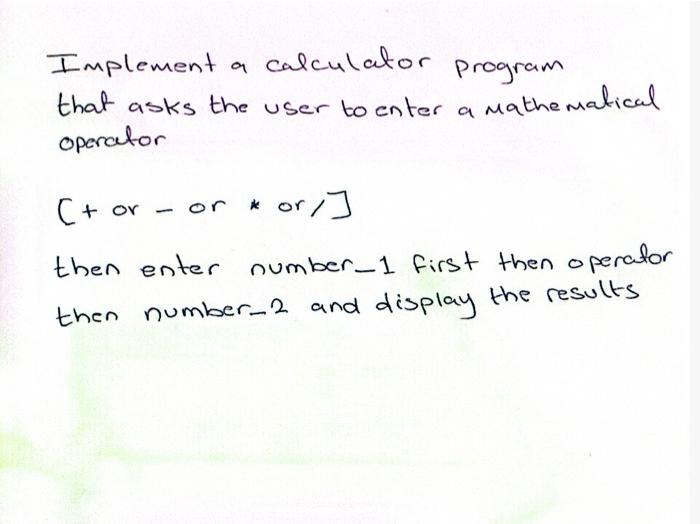 Implement a calculator program
that asks the user to enter a mathematical
operator
[+ or - or * or /]
then enter number_1 first then operator
then number_2 and display the results